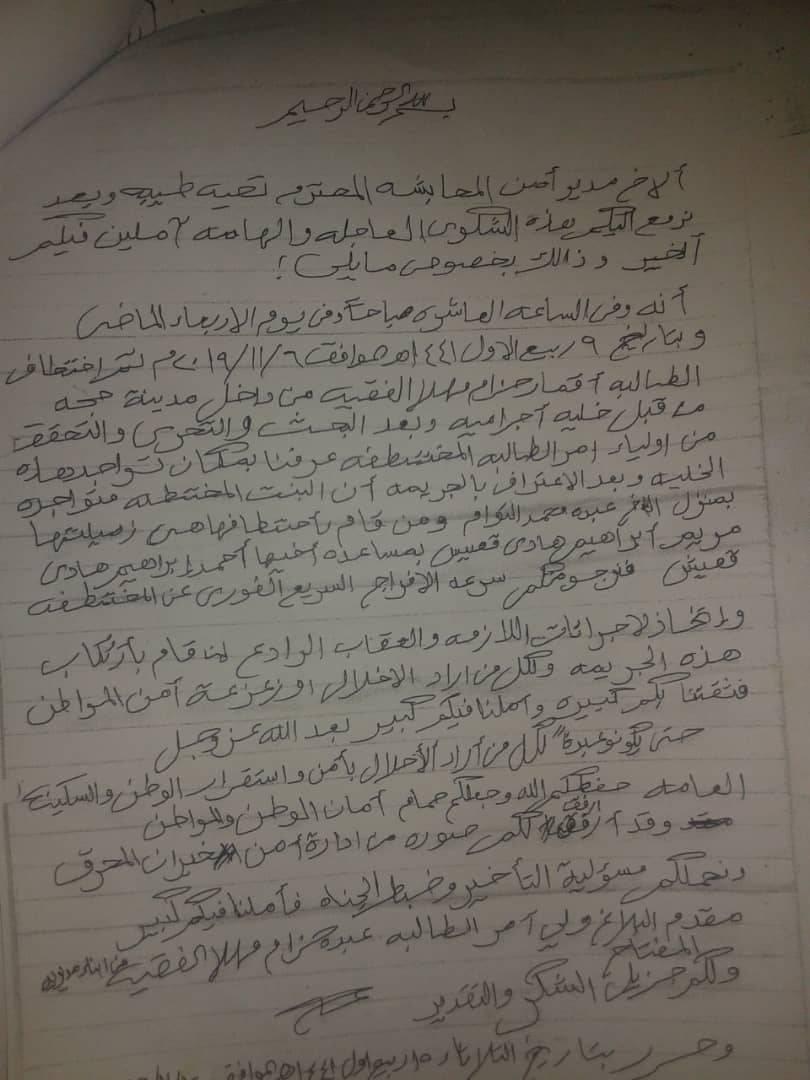 بسم الله الرحمن الرحيم
ألاخ مدير أمن المحابشه المحترم تحيه طيبه وبعد
نرفع أليكم بهذه الشكوى العاجله والهامه آملين فيكم
ألخير وذالك بخصوص مايلي :
أنه وفي الساعه العاشره صباحاً وفي يوم الاربعاء الماضي
وبتاريخ ٩ ربيع الاول ١٤٤١هـ الموافق ٢٠١٩/١١/٦م تم اختطاف
الطالبه أقمار حزام مهلا الفقيه من داخل مدينة حجه
من قبل خليه أجراميه وبعد البحث والتحري والتحقق
من اولياء امر الطالبه المختطفه عرفنا بمكان تواجد هذه
الخليه وبعد الاعتراف بالجريمه أن البنت المختطفه متواجده
بمنزل الاخ عبده محمد التوام ومن قام بأختطافها هي زميلتها
مريم أبراهيم هادي قعيش بمساعده أخيها أحمد إبراهيم هادي
قعيش فنرجو منكم سرعه الافراج السريع الفوري عن المختطفه
وإتخاذ لاجرائات اللازمه والعقاب الرادع لمن قام بأرتكاب
هذه الجريمه ولكل من اراد الاخلال او زعزعة أمن المواطن
فثقتنا بكم كبيره وأملنا فيكم كبير بعد الله عز وجل
حتى يكونو عبرةً لكل من أراد الأخلال بأمن واستقرار الوطن والسكينه
العامه حفظكم الله وجعلكم حمام أمان الوطن والمواطن
وقد أرفق لكم صوره من ادارة أمن خيران المحرق
ونحملكم مسؤلية التأخير وضبط الجناه فأملنا فيكم كبير
مقدم البلاغ ولي أمر الطالبه عبده حزام مهلا الفقيه من ابناء مديريه
المفتاح
ولكم جزيل الشكر والتقدير
وحرر بتاريخ الثلاثاء ١٥ ربيع اول ١٤٤١هـ الموافق